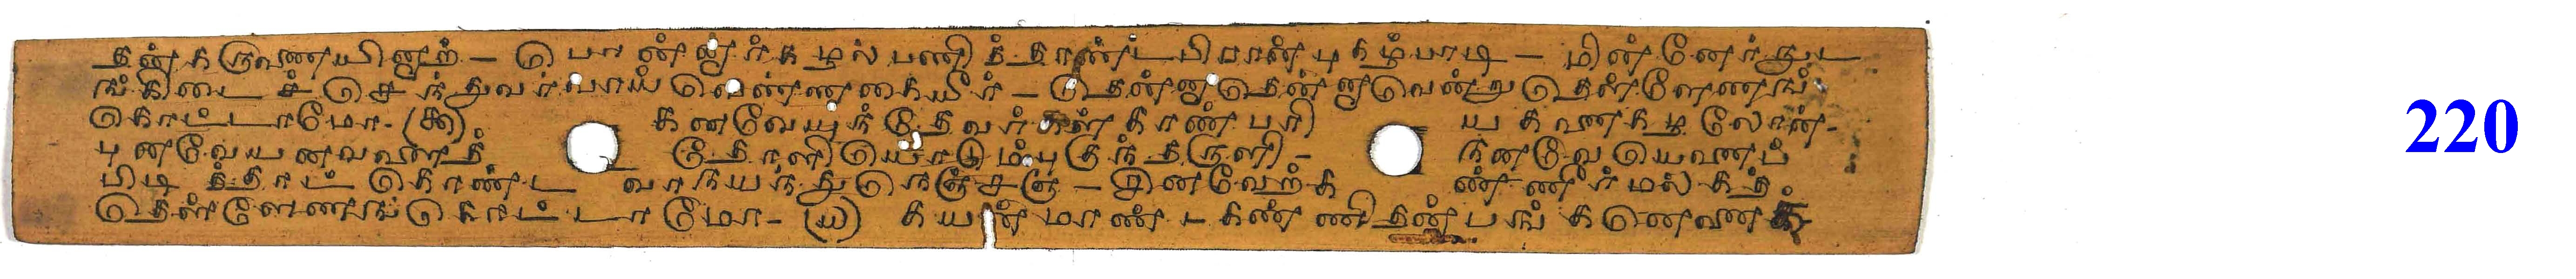 தன்கருணையினாற் - பொன்னார்கழல்பணித்தாண்டபிரான்புகழ்பாடி - மின்னேர்நுட
ங்கிடைச்செந்துவர்வாய்வெண்ணகையீர் - தென்னாதென்னாவென்றுதெள்ளேணங்
கொட்டாமோ - (௯) கனவேயுந்தேவர்கள்காண்பரி ய கனைகழலோன் -
புனவேயனவளைத் தோளியொடும்புகுந்தருளி - நனவேயெனைப்
பிடித்தாட்கொண்ட வாநயந்துநெஞ்சஞ் - சினவேற்க ண்ணீர்மல்கத்
தெள்ளேணங்கொட்டாமோ - (௰) கயன்மாண்டகண்ணிதன்பங்கனெனைக்
220